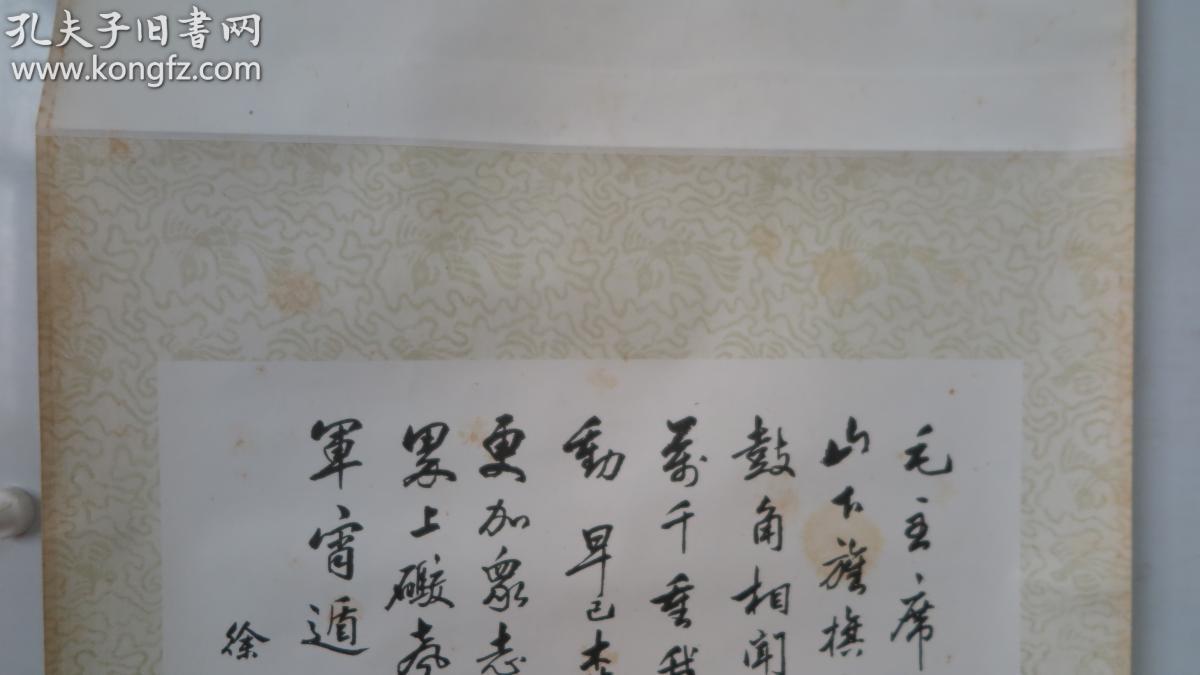 孔夫子旧書网
www.kongfz.com
毛主席
山下旌旗
鼓角相聞
萬千重我
動早已森
更加眾志
界上礮聲
軍宵遁
徐